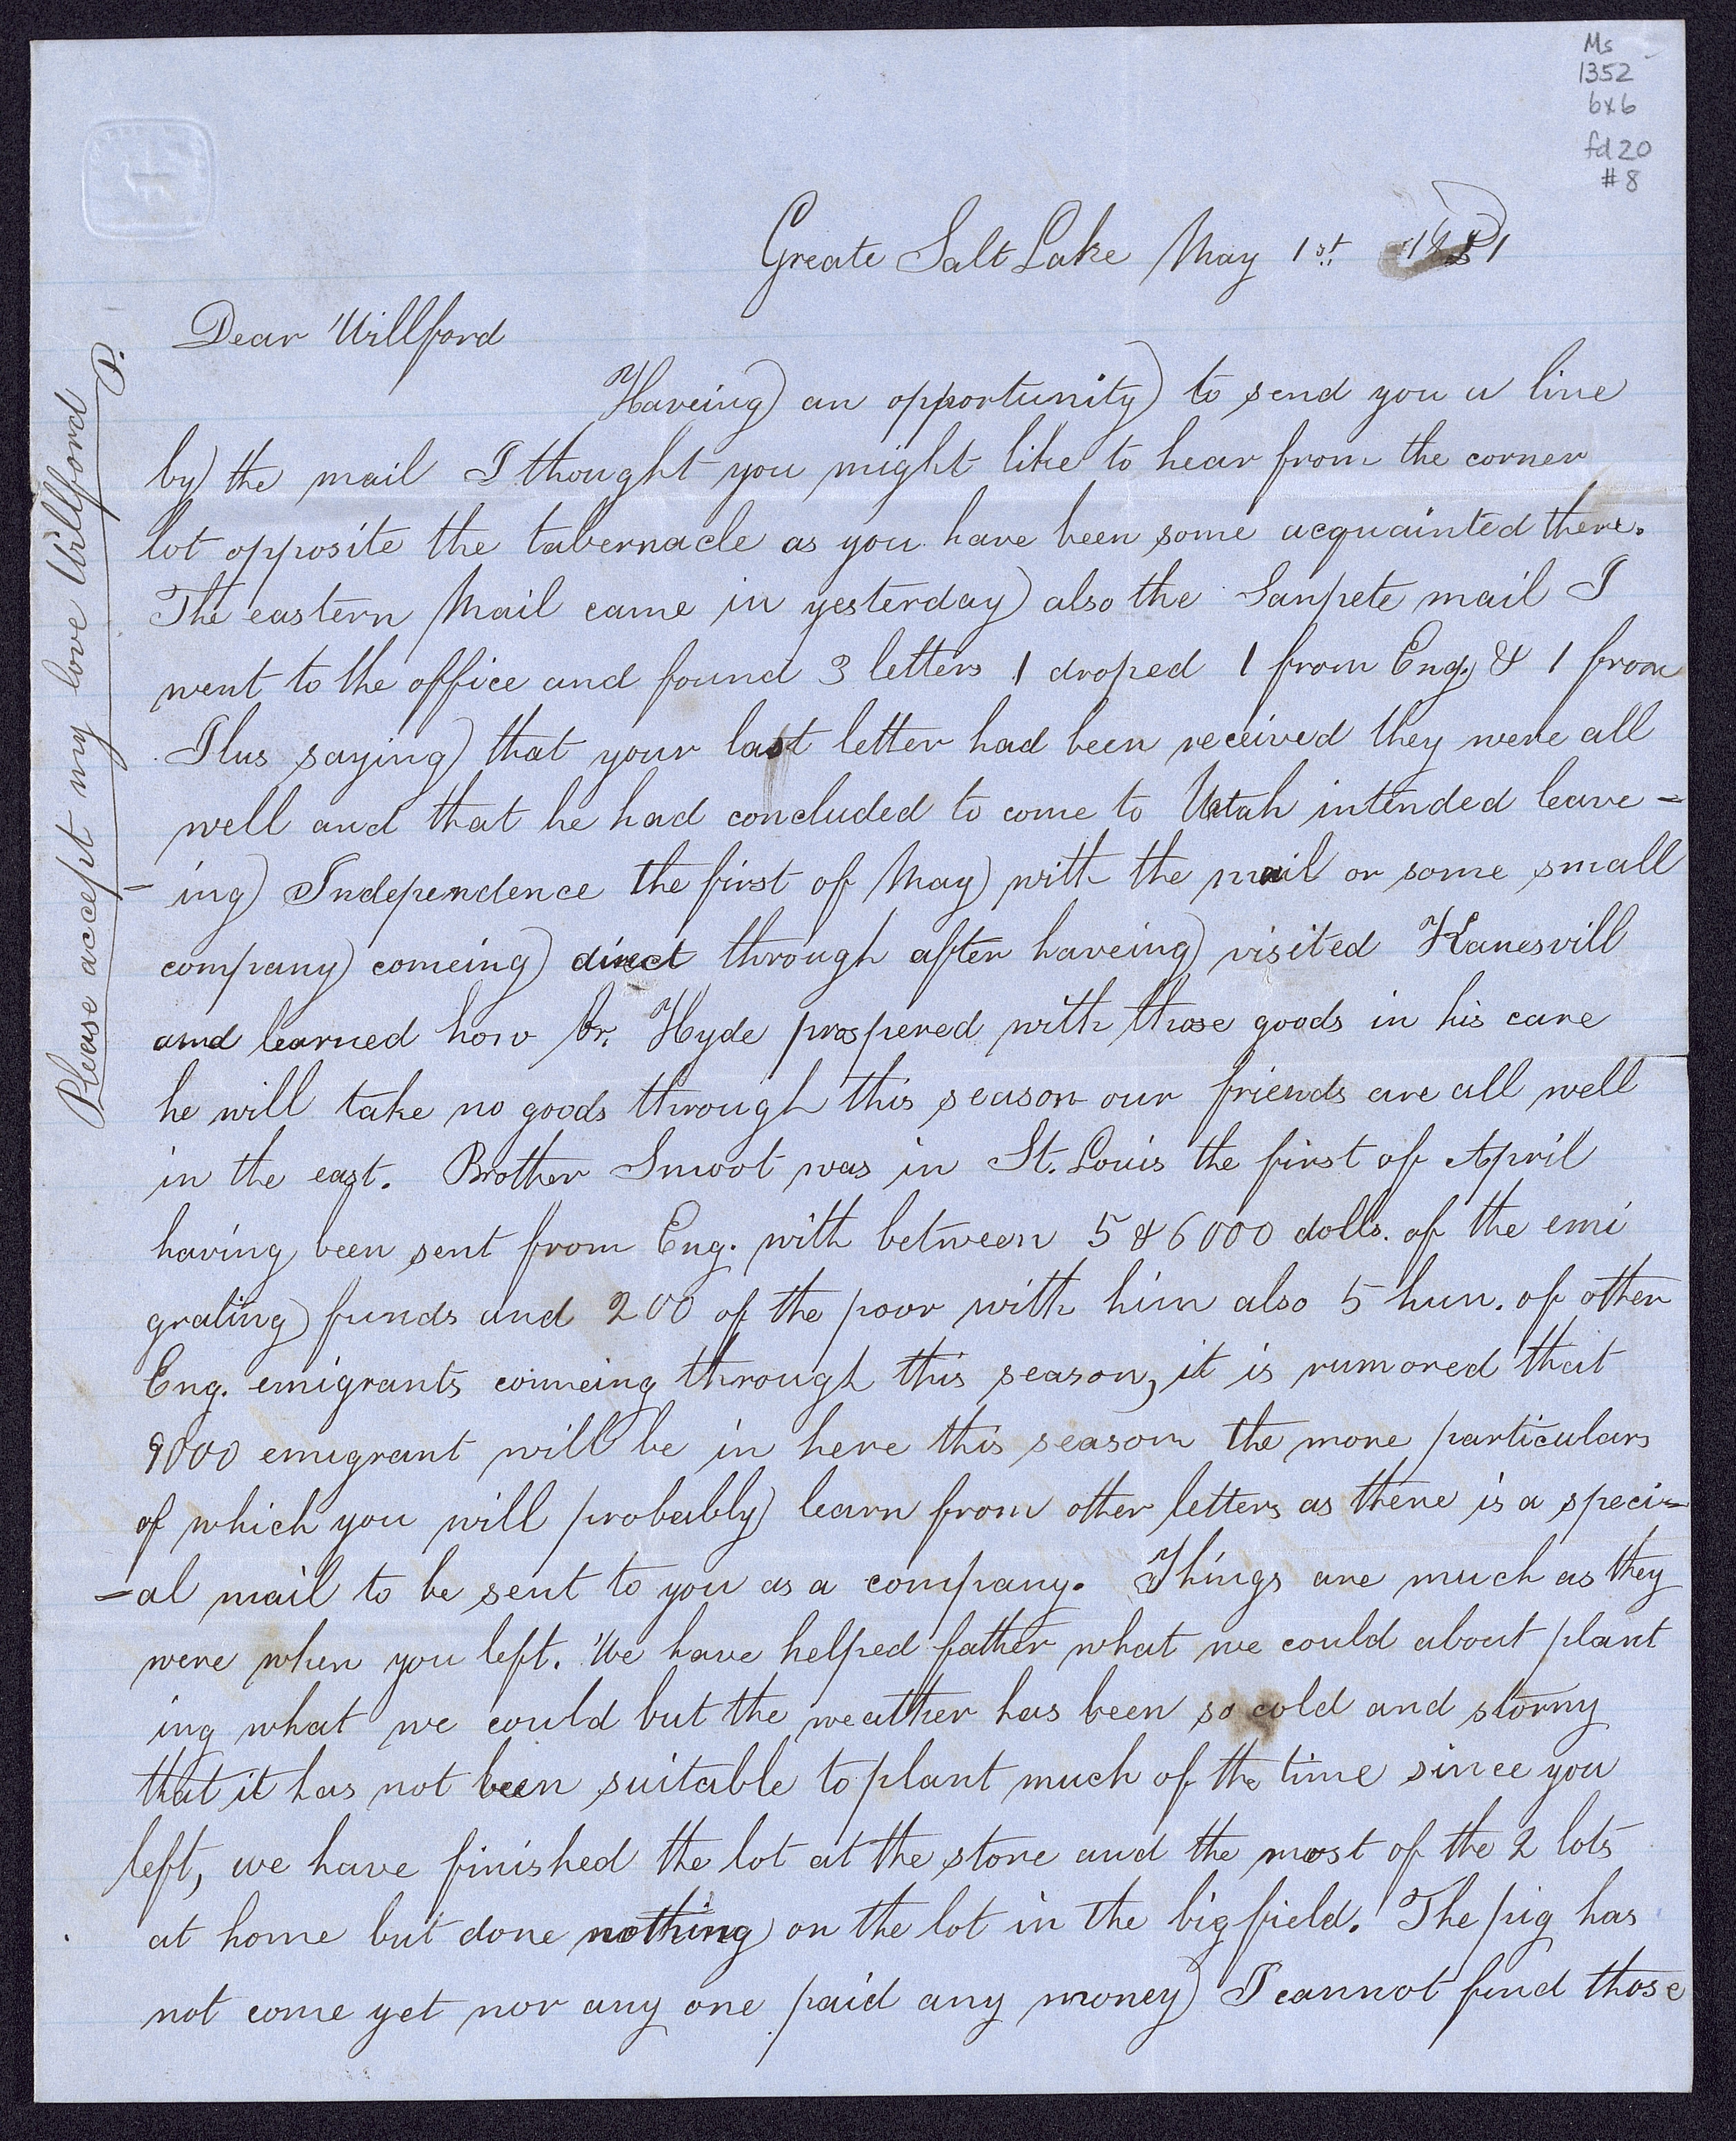 Ms
1352
bx6
fd 20
#8
Greate Salt Lake May 1st. 1851
Dear Willford
Haveing an opportunity to send you a line
by the mail I thought you might like to hear from the corner
lot opposite the tabernacle as you have been some acquainted there.
The eastern Mail came in yesterday also the Sanpete mail I
went to the office and found 3 letters 1 droped 1 from Eng. & 1 from
Ilus saying that your last letter had been received they were all
well and that he had concluded to come to Utah intended leave=
=ing Independence the first of May with the mail or some small
company comeing direct through after haveing visited Kanesvill
and learned how br. Hyde prospered with those goods in his care
he will take no goods through this season our friends are all well
in the east. Brother Smoot was in St. Louis the first of April
having been sent from Eng. with between 5 & 6000 dolls. of the emi
grating funds and 200 of the poor with him also 5 hun. of other
Eng. emigrants comeing through this season, it is rumored that
9000 emigrant will be in here this season the more particulars
of which you will probably learn from other letters as there is a speci=
=al mail to be sent to you as a company. Things are much as they
were when you left. We have helped father what we could about plant
ing what we could but the weather has been so cold and stormy
that it has not been suitable to plant much of the time since you
left, we have finished the lot at the store and the most of the 2 lots
at home but done nothing on the lot in the big field. The pig has
not come yet nor any one paid any money I cannot find those
Please accept my love Willford P.